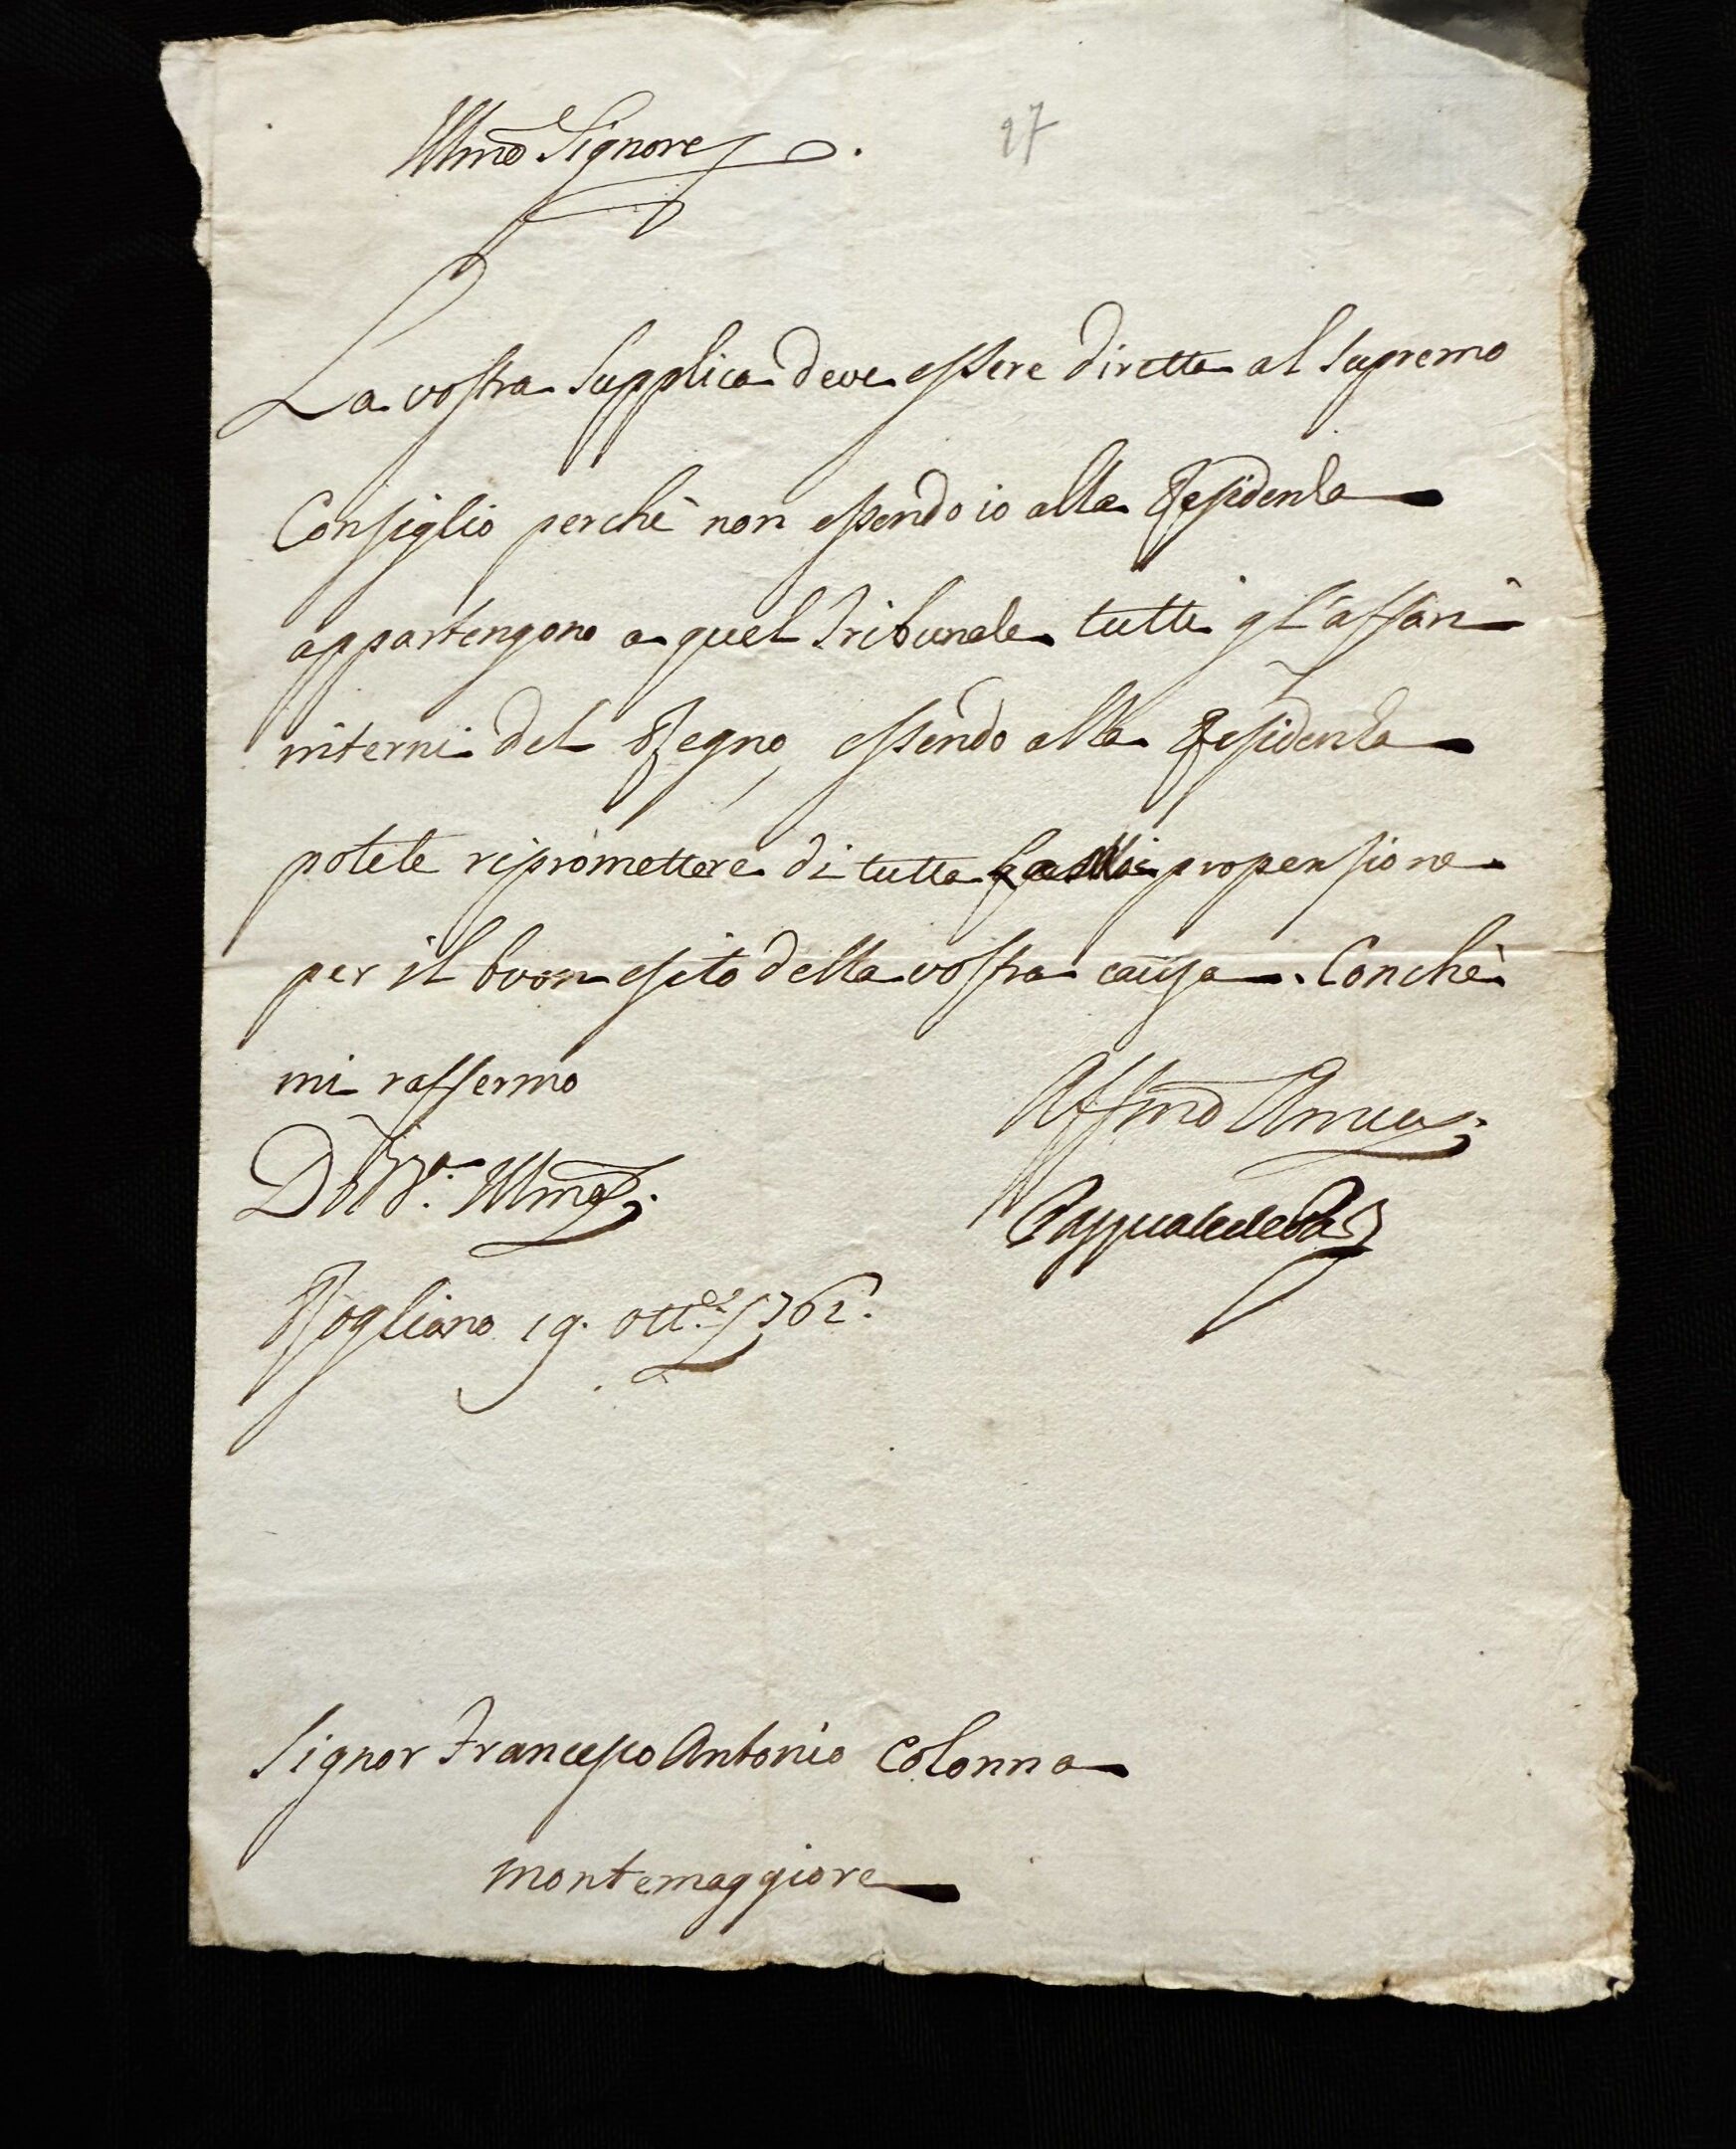 Illmo Signore
27
La vostra Supplica deve essere diretta al Supremo
Consiglio perchè non essendo io alla Residenza
appartengono a quel Tribunale tutti gl'affari
interni del Regno, essendo alla Residenza
potete ripromettere di tutta la mia propensione
per il buon esito della vostra causa. Conchè
mi raffermo
Di V. S. Illma
Affmo Amico
Pasquale de Paoli
Rogliano 19. ott.e 1762.
Signor Francesco Antonio Colonna
Montemaggiore